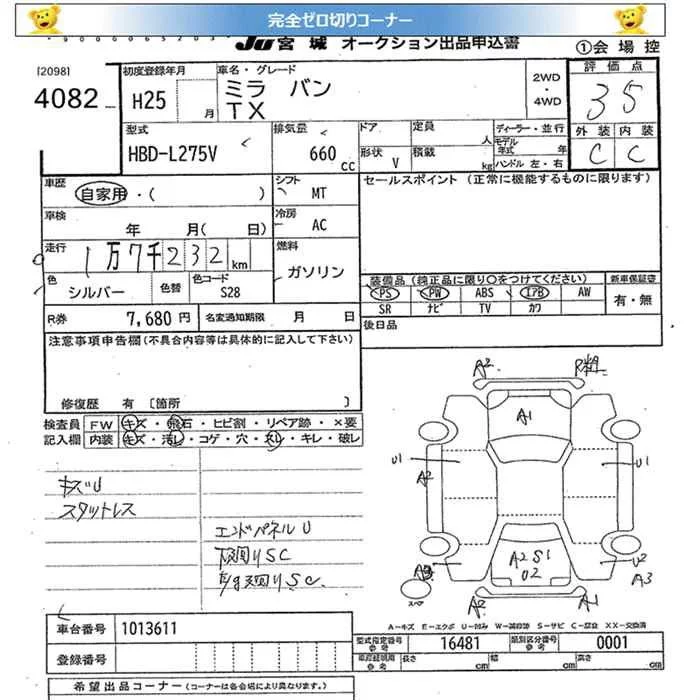 完全ゼロ切りコーナー
Ju 宮 城 オークション出品申込書
①会 場 控
[2098]
4082
初度登録年月
H25 月
車名・グレード
ミラ バン
TX
2WD
・
4WD
評 価 点
3.5
外 装 内 装
C C
型式
HBD-L275V
排気量
660 cc
ドア
形状 V
定員 人
積載 kg
ディーラー・並行
モデル年式 年
ハンドル 左・右
車歴
自家用・( )
シフト
MT
セールスポイント (正常に機能するものに限ります)
車検
年 月( 日)
冷房
AC
走行
1万7千232km
燃料
ガソリン
色
シルバー
色替
色コード
S28
装備品 (純正品に限り○をつけてください)
新車保証書
PS PW ABS エアB AW
有・無
SR ナビ TV カワ
R券 7,680 円
名変通知期限 月 日
後日品
注意事項申告欄(不具合内容等は具体的に記入して下さい)
修復歴 有 〔箇所 〕
検査員
記入欄
FW キズ・飛石・ヒビ割・リペア跡・×要
内装 キズ・汚れ・コゲ・穴・スレ・キレ・破レ
キズU
スタットレス
エンドパネルU
下廻りSC
A2
A1
U1
A2
U1
A2 S1
U2
U2
A3
A2
A1
スペア
A-キズ E-エクボ U-凹み W-補修跡 S-サビ C-腐食 XX-交換済
車台番号 1013611
型式指定番号 参考 16481
類別区分番号 参考 0001
登録番号
長さ cm 幅 cm 高さ cm
希望出品コーナー (コーナーは各会場により異なります。)